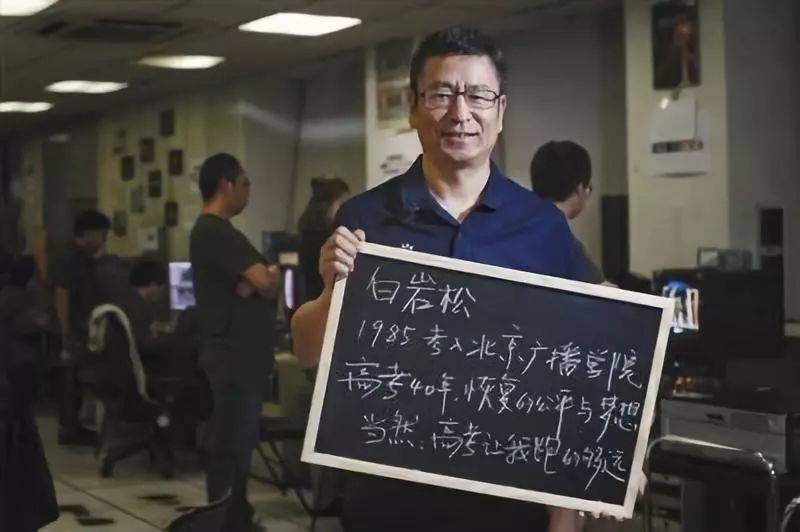 白岩松
1985考入北京广播学院
高考40年,恢复的公平与梦想
当然,高考让我跑的够远